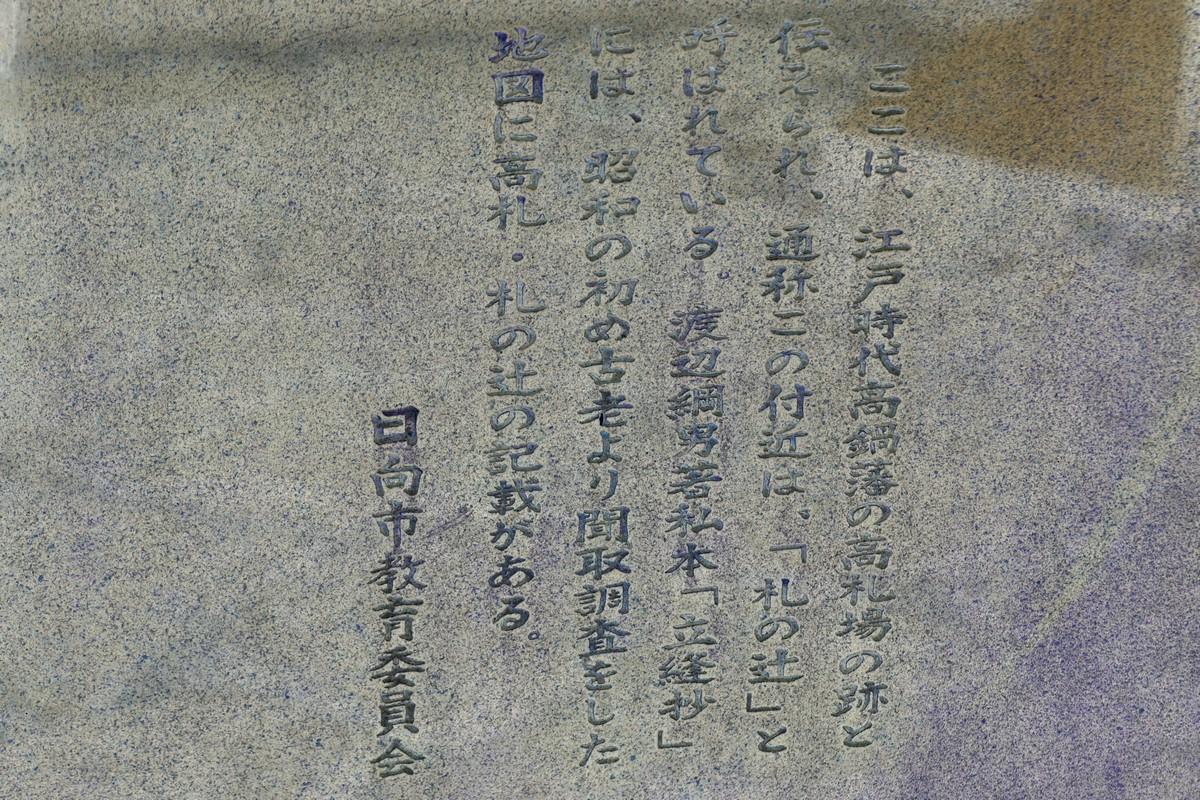 ここは、江戸時代高鍋藩の高札場の跡と
伝えられ、通称この付近は、「札の辻」と
呼ばれている。渡辺綱男著私本「立縫抄」
には、昭和の初め古老より聞取調査をした
地図に高札・札の辻の記載がある。
日向市教育委員会